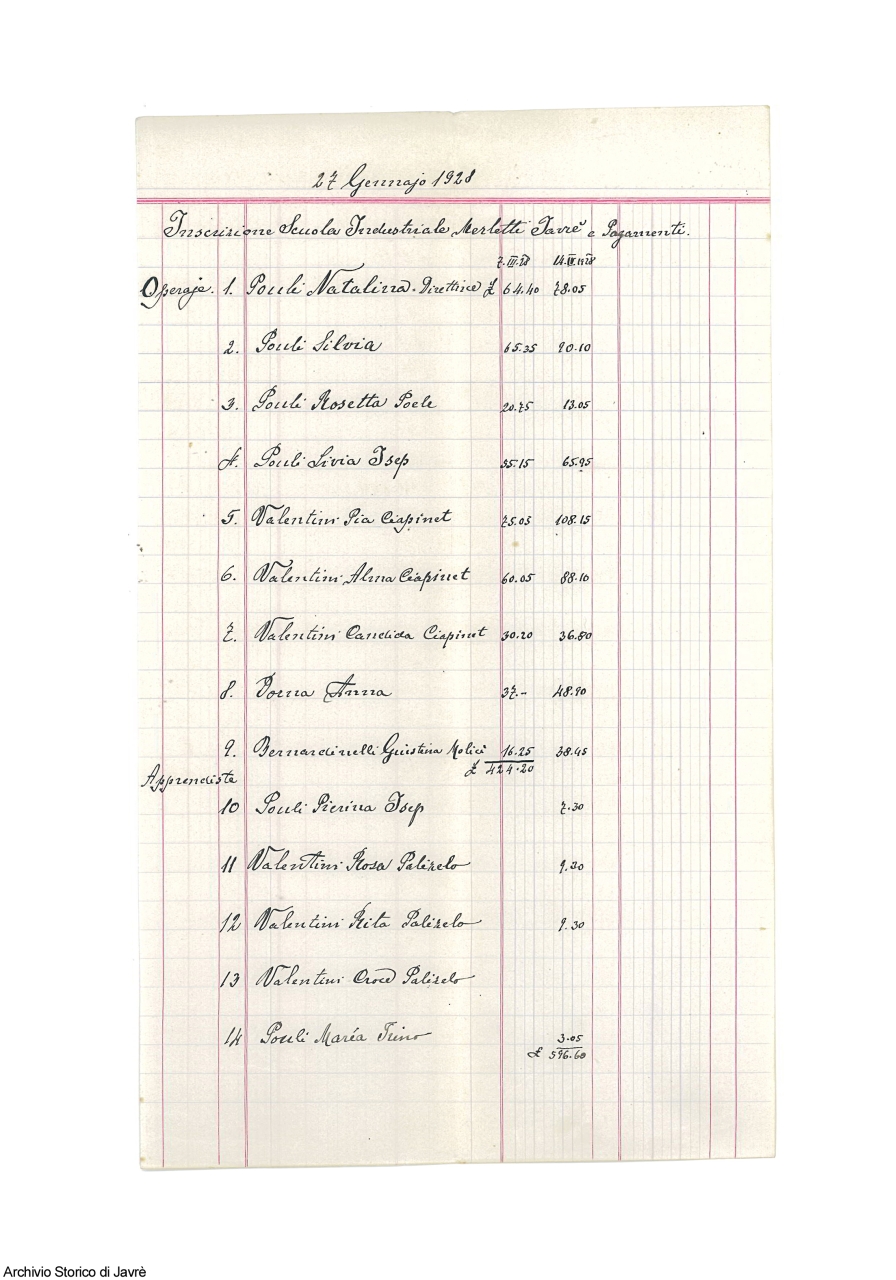 27 Gennajo 1928
Inscrizione Scuola Industriale Merletti Javrè e Pagamenti.
7.III.28 14.IV.1928
Operaje. 1. Pouli Natalina. Direttrice £ 64.40 78.05
2. Pouli Silvia 65.35 90.10
3. Pouli Rosetta Poele 20.75 13.05
4. Pouli Livia Isep 35.15 65.95
5. Valentini Pia Ciapinet 75.05 108.15
6. Valentini Alma Ciapinet 60.05 88.10
7. Valentini Candida Ciapinet 30.20 36.80
8. Dorna Anna 37.- 48.90
9. Bernardinelli Giustina Molici 16.25 38.45
£ 424.20
Apprendiste
10 Pouli Pierina Isep 7.30
11 Valentini Rosa Palizelo 9.30
12 Valentini Rita Palizelo 9.30
13 Valentini Croce Palizelo
14 Pouli Maria Trino 3.05
£ 596.60
Archivio Storico di Javrè